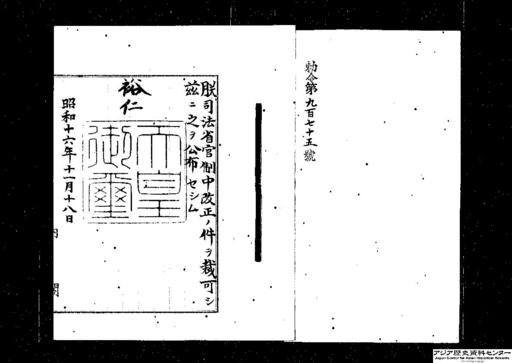 勅令第九百七十五號
朕司法省官制中改正ノ件ヲ裁可シ
茲ニ之ヲ公布セシム
裕仁
天皇御璽
昭和十六年十一月十八日
内閣
アジア歴史資料センター
Japan Center for Asian Historical Records